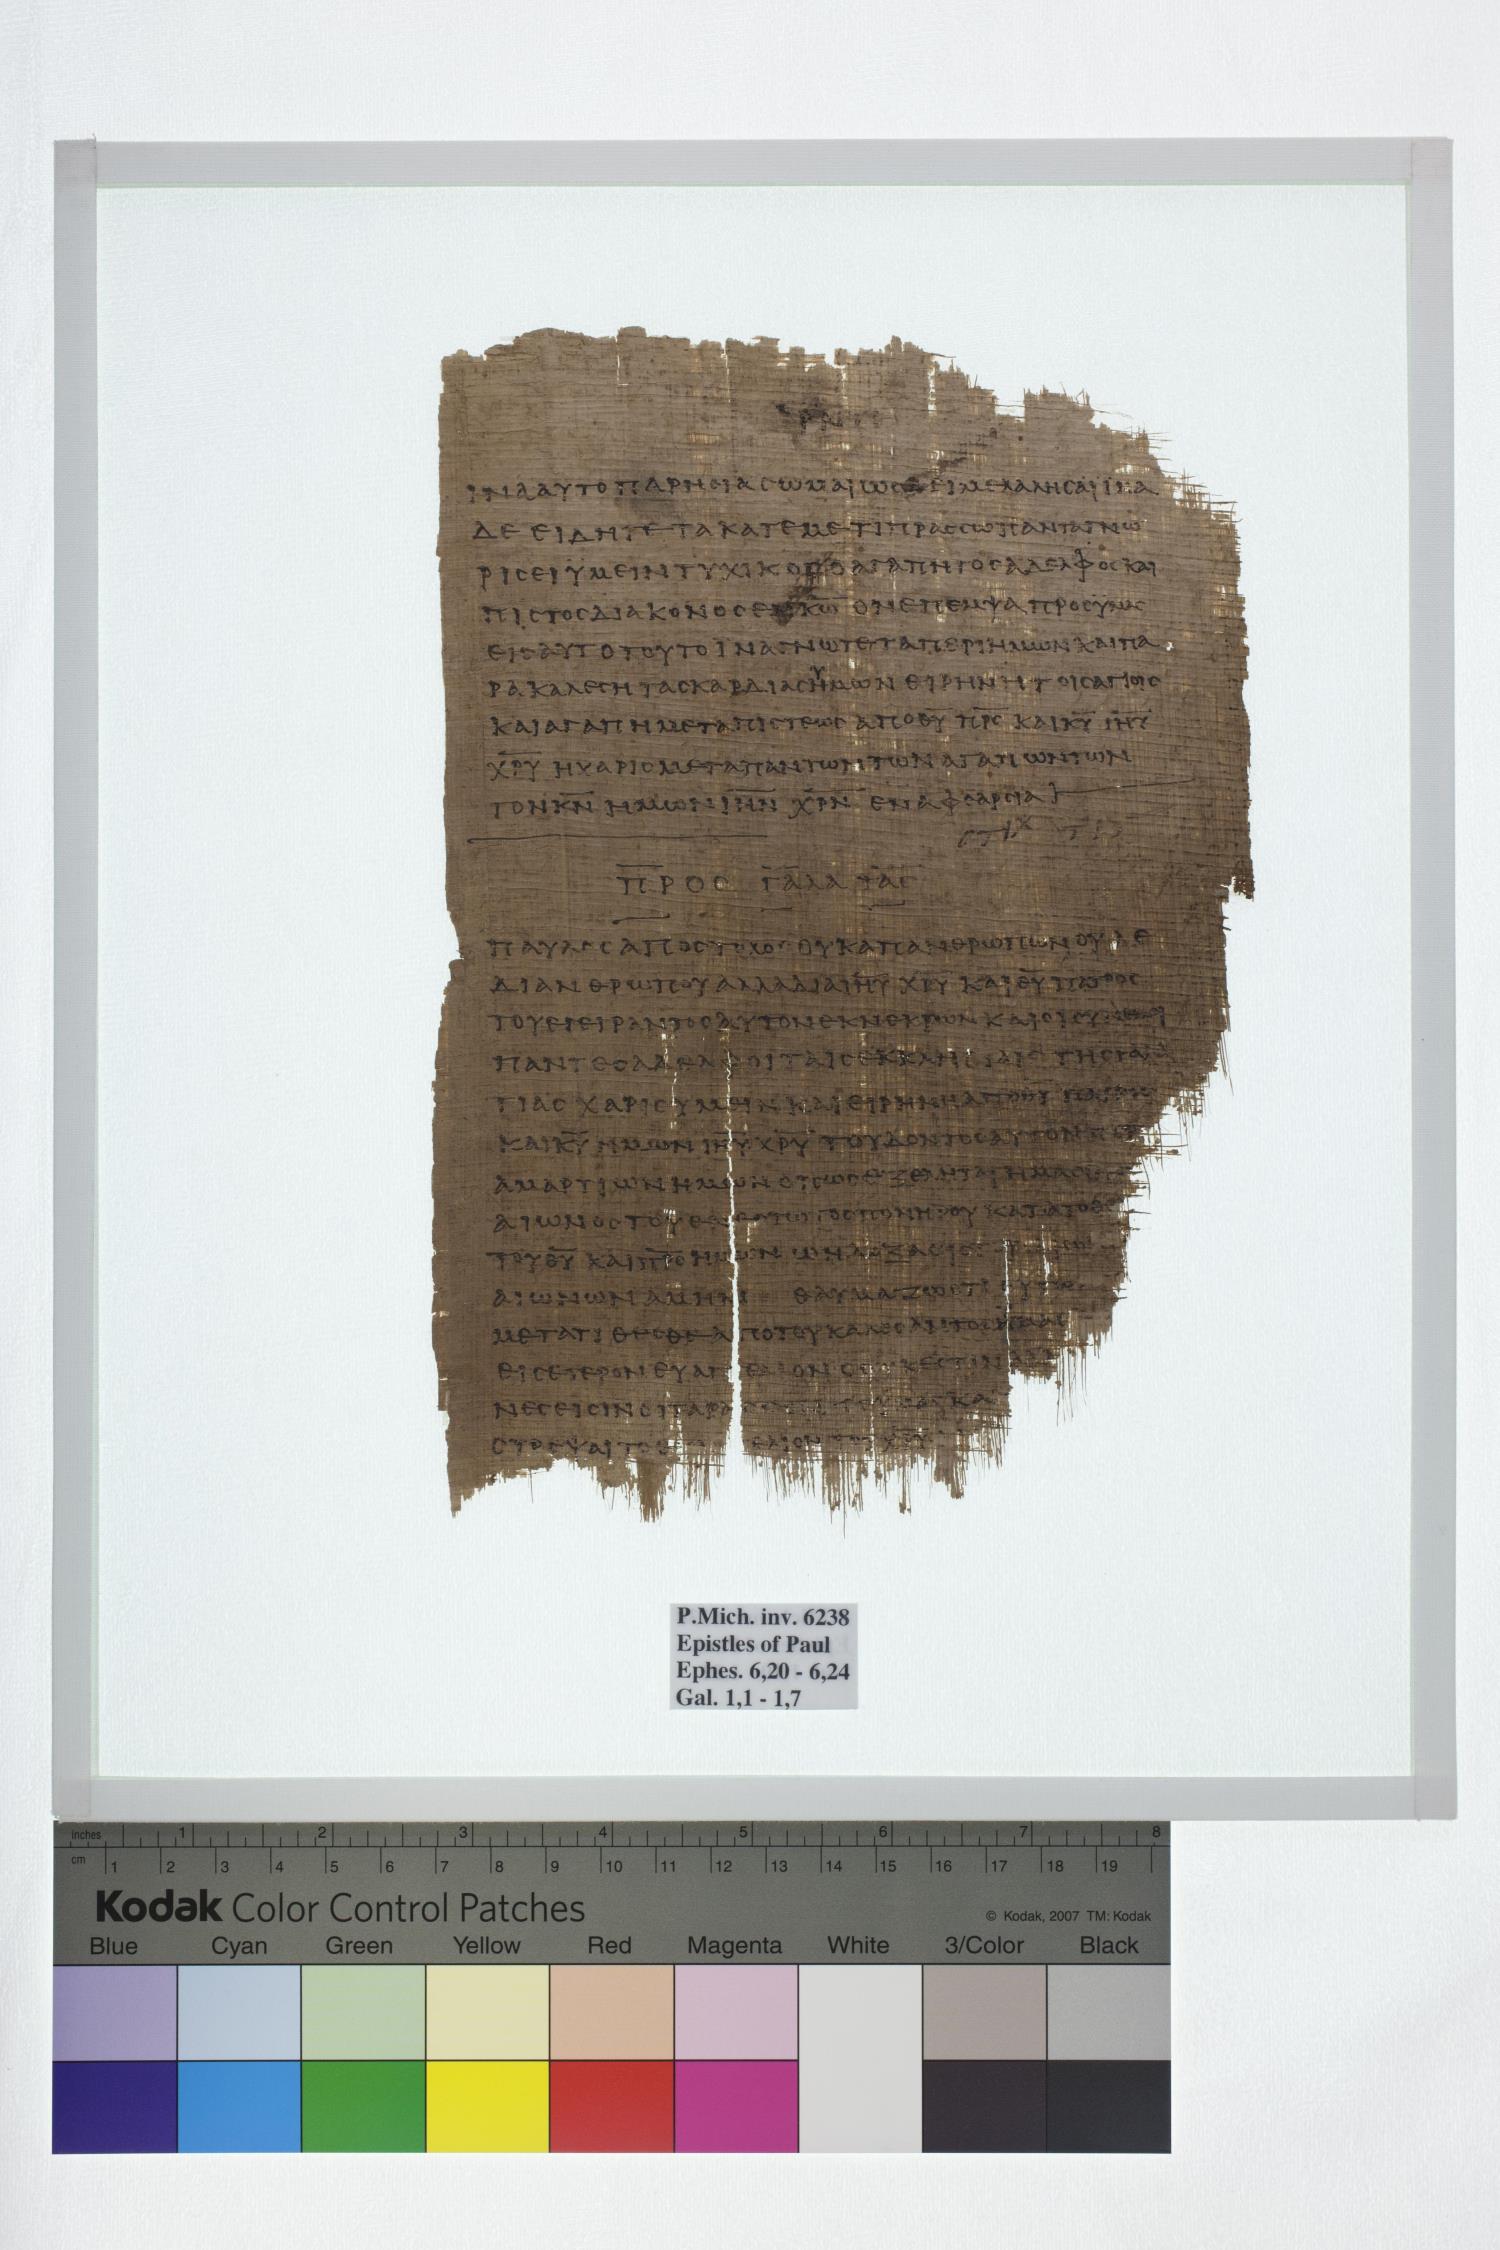 ΙΝΑ ΑΥΤΟ ΠΑΡΗΣΙΑΣΩΜΑΙ ΩΣ ΔΕΙ ΜΕ ΛΑΛΗΣΑΙ ΙΝΑ
ΔΕ ΕΙΔΗΤΕ ΤΑ ΚΑΤ ΕΜΕ ΤΙ ΠΡΑΣΣΩ ΠΑΝΤΑ ΓΝΩ
ΡΙΣΕΙ ΥΜΕΙΝ ΤΥΧΙΚΟΣ Ο ΑΓΑΠΗΤΟΣ ΑΔΕΛΦΟΣ ΚΑΙ
ΠΙΣΤΟΣ ΔΙΑΚΟΝΟΣ ΕΝ Κ̅Ω̅ ΟΝ ΕΠΕΜΨΑ ΠΡΟΣ ΥΜΑΣ
ΕΙΣ ΑΥΤΟ ΤΟΥΤΟ ΙΝΑ ΓΝΩΤΕ ΤΑ ΠΕΡΙ ΗΜΩΝ ΚΑΙ ΠΑ
ΡΑΚΑΛΕΣΗ ΤΑΣ ΚΑΡΔΙΑΣ ΗΜΩΝ ΕΙΡΗΝΗ ΤΟΙΣ ΑΓΙΟΙΣ
ΚΑΙ ΑΓΑΠΗ ΜΕΤΑ ΠΙΣΤΕΩΣ ΑΠΟ Θ̅Υ̅ Π̅Ρ̅Σ̅ ΚΑΙ Κ̅Υ̅ Ι̅Η̅Υ̅
Χ̅Ρ̅Υ̅ Η ΧΑΡΙΣ ΜΕΤΑ ΠΑΝΤΩΝ ΤΩΝ ΑΓΑΠΩΝΤΩΝ
ΤΟΝ Κ̅Ν̅ ΗΜΩΝ Ι̅Η̅Ν̅ Χ̅Ρ̅Ν̅ ΕΝ ΑΦΘΑΡΣΙΑ
ΣΤΙΧ
ΠΡΟΣ ΓΑΛΑΤΑΣ
ΠΑΥΛΟΣ ΑΠΟΣΤΟΛΟΣ ΟΥΚ ΑΠ ΑΝΘΡΩΠΩΝ ΟΥΔΕ
ΔΙ ΑΝΘΡΩΠΟΥ ΑΛΛΑ ΔΙΑ Ι̅Η̅Υ̅ Χ̅Ρ̅Υ̅ ΚΑΙ Θ̅Υ̅ ΠΑΤΡΟΣ
ΤΟΥ ΕΓΕΙΡΑΝΤΟΣ ΑΥΤΟΝ ΕΚ ΝΕΚΡΩΝ ΚΑΙ ΟΙ ΣΥΝ ΕΜΟΙ
ΠΑΝΤΕΣ ΑΔΕΛΦΟΙ ΤΑΙΣ ΕΚΚΛΗΣΙΑΙΣ ΤΗΣ ΓΑΛΑ
ΤΙΑΣ ΧΑΡΙΣ ΥΜΕΙΝ ΚΑΙ ΕΙΡΗΝΗ ΑΠΟ Θ̅Υ̅ ΠΑΤΡΟΣ
ΚΑΙ Κ̅Υ̅ ΗΜΩΝ Ι̅Η̅Υ̅ Χ̅Ρ̅Υ̅ ΤΟΥ ΔΟΝΤΟΣ ΑΥΤΟΝ ΠΕΡ
ΑΜΑΡΤΙΩΝ ΗΜΩΝ ΟΠΩΣ ΕΞΕΛΗΤΑΙ ΗΜΑΣ
ΑΙΩΝΟΣ ΤΟΥ ΕΝΕΣΤΩΤΟΣ ΠΟΝΗΡΟΥ ΚΑΤΑ ΤΟ
ΤΟΥ Θ̅Υ̅ ΚΑΙ Π̅Ρ̅Ο̅ ΗΜΩΝ Ω Η ΔΟΞΑ ΕΙΣ
ΑΙΩΝΩΝ ΑΜΗΝ ΘΑΥΜΑΖΩ ΟΤΙ ΟΥΤΩΣ
ΜΕΤΑΤΙΘΕΣΘΕ ΑΠΟ ΤΟΥ ΚΑΛΕΣΑΝΤΟΣ ΥΜΑΣ
ΕΙΣ ΕΤΕΡΟΝ ΕΥΑΓΓΕΛΙΟΝ Ο ΟΥΚ ΕΣΤΙΝ ΑΛΛ
ΝΕΣ ΕΙΣΙΝ ΟΙ ΤΑΡΑΣ
ΣΤΡΕΨΑΙ ΤΟ ΕΥ ΕΛΙΟΝ ΤΟΥ Χ̅Ρ̅Υ̅
P.Mich. inv. 6238
Epistles of Paul
Ephes. 6,20 - 6,24
Gal. 1,1 - 1,7
inches 1 2 3 4 5 6 7 8
cm 1 2 3 4 5 6 7 8 9 10 11 12 13 14 15 16 17 18 19
Kodak Color Control Patches
© Kodak, 2007 TM: Kodak
Blue Cyan Green Yellow Red Magenta White 3/Color Black